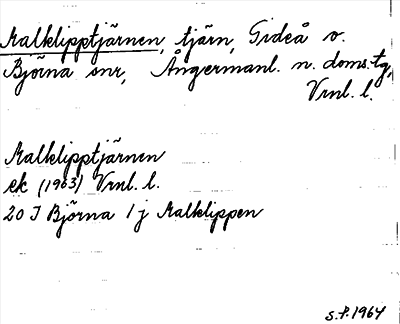 Malklipptjärnen, tjärn, Gideå o.
Björna snr, Ångermanl. n. doms.tg,
Vrnl. l.
Malklipptjärnen
ek (1963) Vrnl. l.
20 I Björna 1 j Malklippen
S.P. 1964